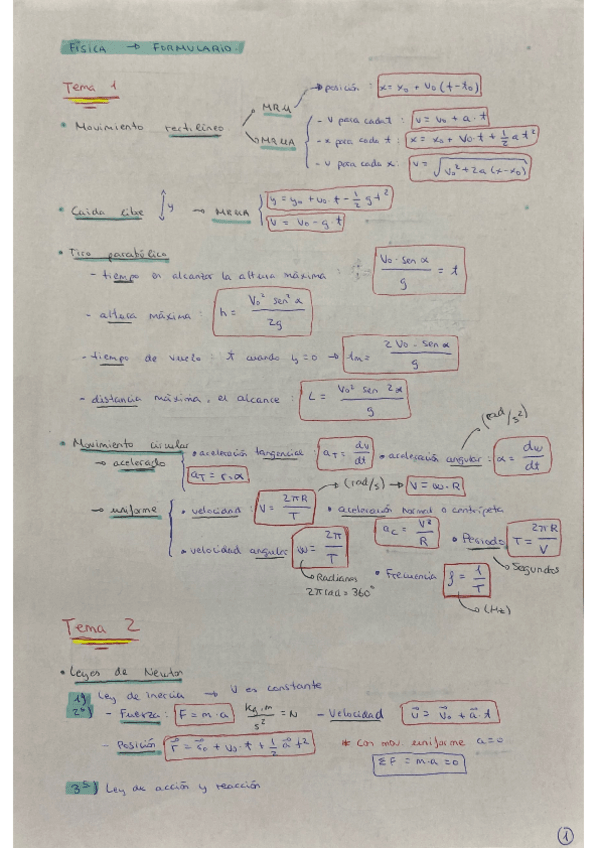 FÍSICA → FORMULARIO.
Tema 1
• Movimiento rectilíneo
MRU → posición : x = x₀ + v₀ (t - t₀)
MRUA
- v para cada t : v = v₀ + a · t
- x para cada t : x = x₀ + v₀ · t + 1/2 a t²
- v para cada x : v = √(v₀² + 2a (x - x₀))
• Caída libre ↕ y → MRUA
y = y₀ + v₀ · t - 1/2 g t²
v = v₀ - g · t
• Tiro parabólico
- tiempo en alcanzar la altura máxima : v₀ · sen α / g = t
- altura máxima : h = v₀² sen² α / 2g
- tiempo de vuelo : t cuando y = 0 → = 2 v₀ · sen α / g
- distancia máxima, el alcance : L = v₀² sen 2α / g
• Movimiento circular
(rad/s²)
→ acelerado • aceleración tangencial : a_T = dv/dt • aceleración angular : α = dω/dt
a_T = r · α
(rad/s) → v = ω · R
→ uniforme • velocidad : v = 2πR / T • aceleración normal o centrípeta
a_c = v² / R • Periodo T = 2πR / v
• velocidad angular ω = 2π / T
Segundos
Radianes • Frecuencia f = 1 / T
2π rad = 360°
(Hz)
Tema 2
• Leyes de Newton
1ª) Ley de inercia → v es constante
2ª) - Fuerza : F = m · a kg · m / s² = N - Velocidad v⃗ = v⃗₀ + a⃗ · t
- Posición r⃗ = r⃗₀ + v₀ · t + 1/2 a⃗ t² * con mov. uniforme a = 0
ΣF = m · a = 0
3ª) Ley de acción y reacción
1